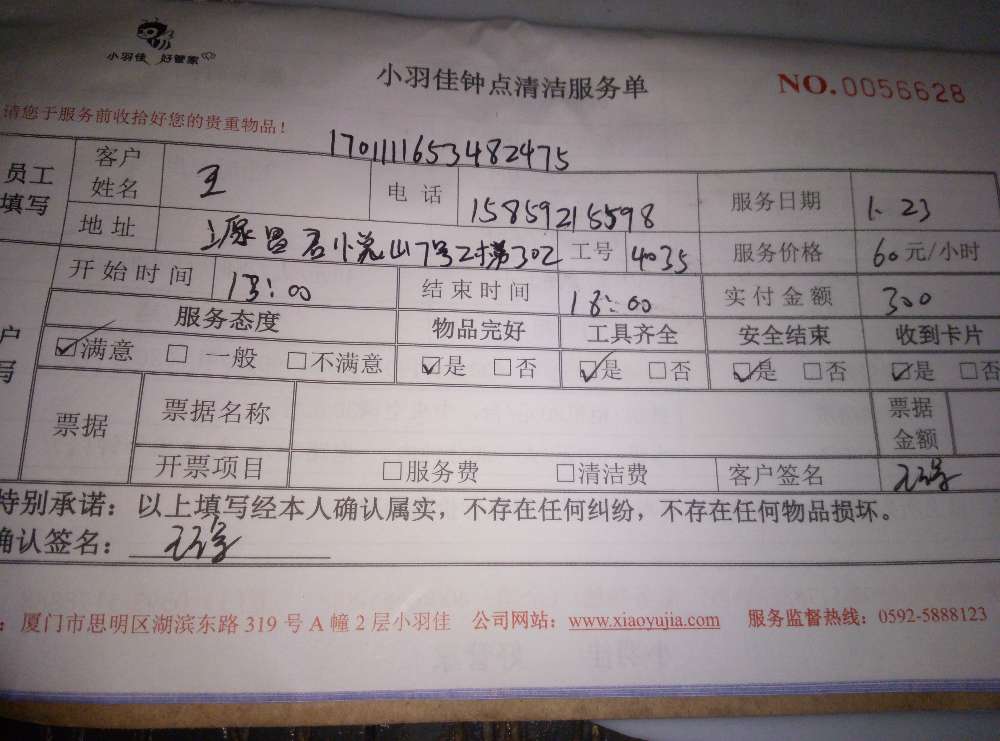 小羽佳 好管家
小羽佳钟点清洁服务单
NO.0056628
请您于服务前收拾好您的贵重物品!
1701111653482475
员工填写 客户姓名 王 电话 15859215598 服务日期 1.23
地址 山7号2梯302 工号 4035 服务价格 60元/小时
开始时间 13:00 结束时间 18:00 实付金额 300
户写 服务态度 物品完好 工具齐全 安全结束 收到卡片
☑满意 □一般 □不满意 ☑是 □否 ☑是 □否 ☑是 □否 ☑是 □否
票据 票据名称 票据金额
开票项目 □服务费 □清洁费 客户签名
特别承诺:以上填写经本人确认属实,不存在任何纠纷,不存在任何物品损坏。
确认签名:
:厦门市思明区湖滨东路319号A幢2层小羽佳 公司网站:www.xiaoyujia.com 服务监督热线:0592-5888123